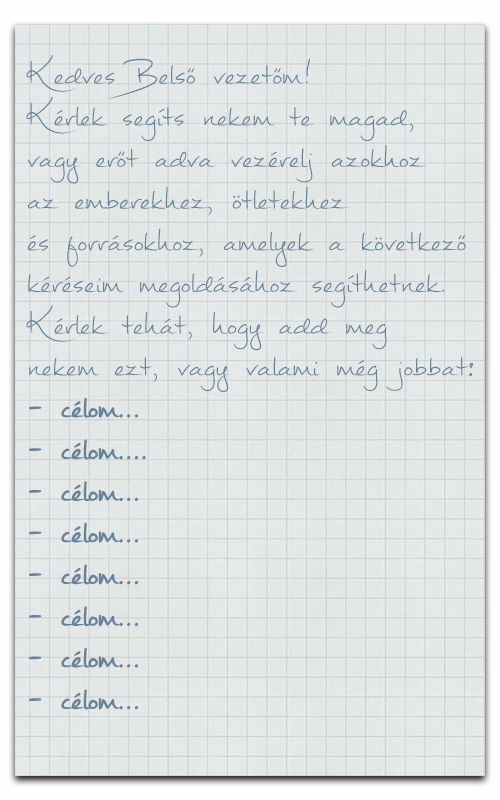 Kedves Belső vezetőm!
Kérlek segíts nekem te magad,
vagy erőt adva vezérelj azokhoz
az emberekhez, ötletekhez
és forrásokhoz, amelyek a következő
kéréseim megoldásához segíthetnek.
Kérlek tehát, hogy add meg
nekem ezt, vagy valami még jobbat:
- célom...
- célom....
- célom...
- célom...
- célom...
- célom...
- célom...
- célom...